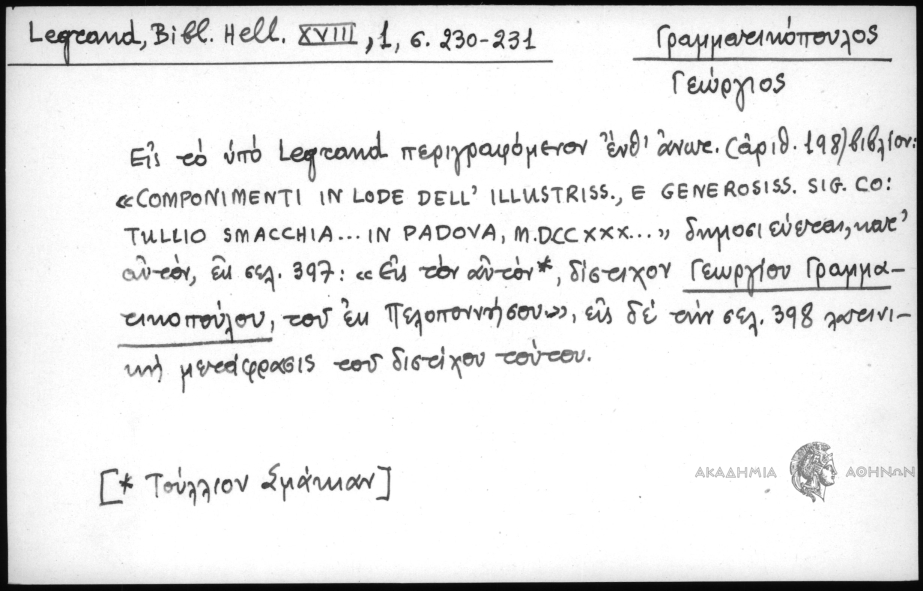 Legrand, Bibl. Hell. XVIII, 1, σ. 230-231
Γραμματικόπουλος
Γεώργιος
Εἰς τό ὑπό Legrand περιγραφόμενον ἐνθ' ἀνωτ. (ἀριθ. 198) βιβλίον:
«COMPONIMENTI IN LODE DELL' ILLUSTRISS., E GENEROSISS. SIG. CO:
TULLIO SMACCHIA... IN PADOVA, M.DCCXXX...» δημοσιεύεται, κατ'
αὐτόν, ἐν σελ. 397: «Εἰς τόν αὐτόν*, δίστιχον Γεωργίου Γραμμα-
τικοπούλου, τοῦ ἐκ Πελοποννήσου», εἰς δέ τήν σελ. 398 λατινι-
κή μετάφρασις τοῦ διστίχου τούτου.
[* Τούλλιον Σμάκιαν]
ΑΚΑΔΗΜΙΑ ΑΘΗΝΩΝ